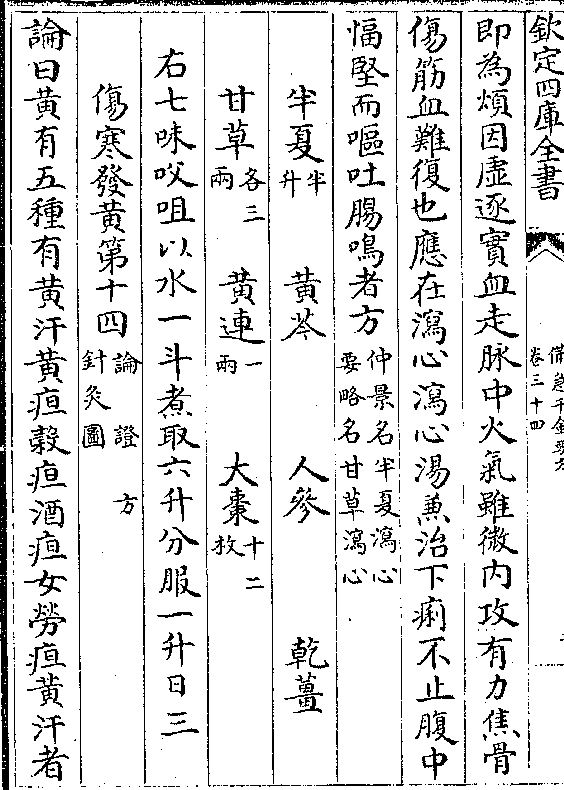 欽定四庫全書
備急千金要方
卷三十四
即為煩因虛逐實血走脉中火氣雖微内攻有力焦骨
傷筋血難復也應在瀉心瀉心湯兼治下痢不止腹中
愊堅而嘔吐腸鳴者方
仲景名半夏瀉心
要略名甘草瀉心
半夏
半
升
黃芩
人參
乾薑
甘草
各三
兩
黃連
一
兩
大棗
十二
枚
右七味㕮咀以水一斗煮取六升分服一升日三
傷寒發黃第十四
論 證 方
針灸圖
論曰黃有五種有黃汗黃疸穀疸酒疸女勞疸黃汗者